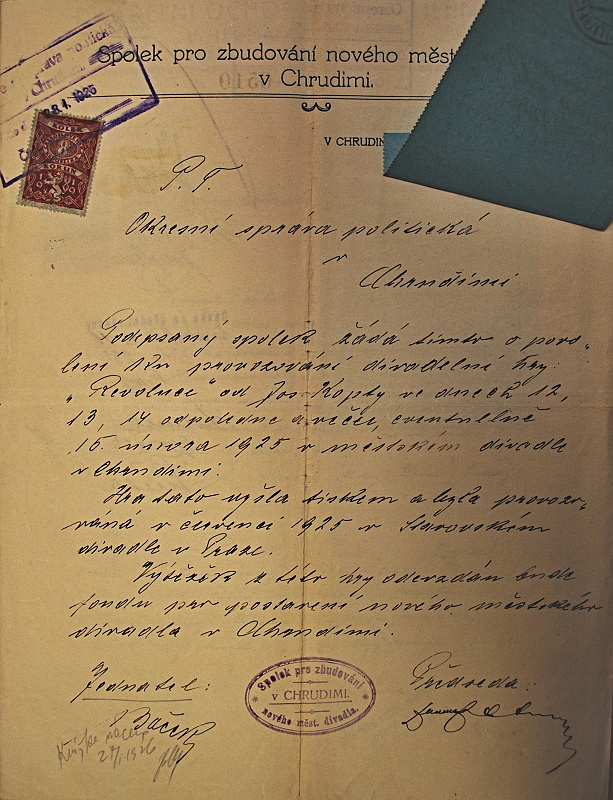 Spolek pro zbudování nového měst
v Chrudimi.
28.1.1926
V CHRUDIM
P. T.
Okresní správa politická
v
Chrudimi
Podepsaný spolek žádá tímto o povo-
lení ku provozování divadelní hry:
„Revoluce" od Jos. Kopty ve dnech 12,
13, 14 odpoledne a večer, eventuelně
15. února 1925 v městském divadle
v Chrudimi.
Hra tato vyšla tiskem a byla provozo-
vána v červenci 1925 v Stavovském
divadle v Praze.
Výtěžek z této hry odevzdán bude
fondu pro postavení nového městského
divadla v Chrudimi.
Jednatel:
Předseda:
Spolek pro zbudování
V CHRUDIMI.
nového měst. divadla.